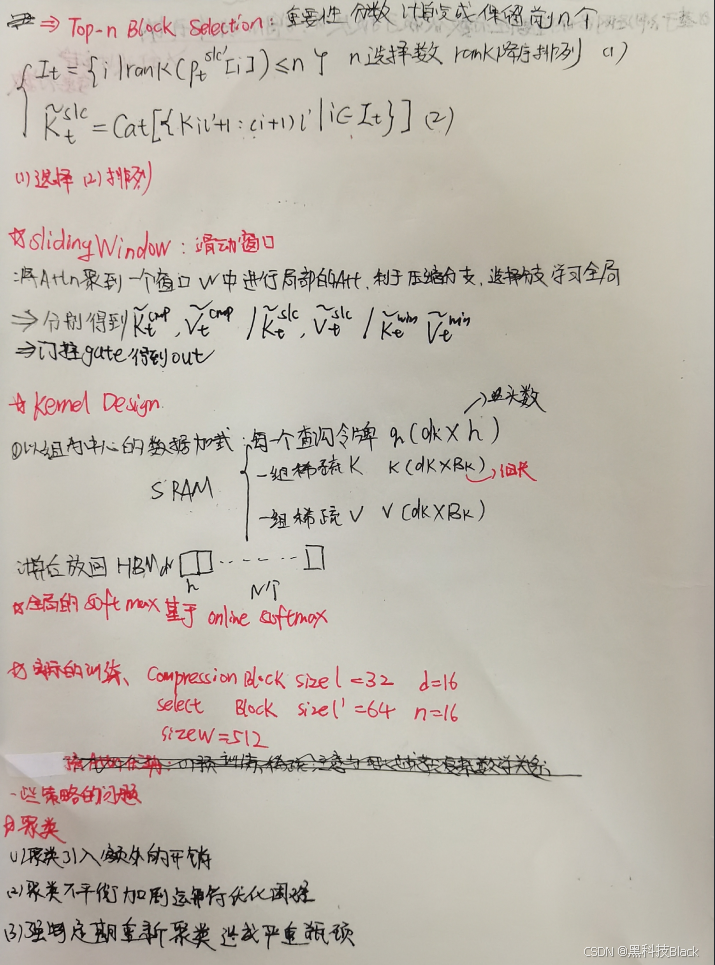 ⇒ Top-n Block Selection: 重要性分数计算完成保留前n个
I_t = {i | rank(p_t^{slc'}[i]) ≤ n} n选择数 rank降序排列 (1)
K̃_t^{slc} = Cat[{K_{il'+1:(i+1)l'} | i∈I_t}] (2)
(1)选择 (2)排列
☆sliding Window: 滑动窗口
:将Attn聚到一个窗口W中进行局部的Att, 利于压缩分支, 选择分支学习全局
⇒分别得到 K̃_t^{cmp}, Ṽ_t^{cmp} / K̃_t^{slc}, Ṽ_t^{slc} / K̃_t^{win} Ṽ_t^{win}
⇒门控gate得到out
☆ Kernel Design.
→头数
①以组为中心的数据加载: 每一个查询令牌 q(dk×h)
一组稀疏K K(dk×Bk) →块长
SRAM
一组稀疏V V(dk×Bk)
计算后放回HBM
h N个
☆全局的softmax基于 online softmax
☆实际的训练、Compression Block size l=32 d=16
select Block size l'=64 n=16
size w=512
一些策略的问题
聚类
(1)聚类引入额外的开销
(2)聚类不平衡加剧运算符优化困难
(3)强制定期重新聚类造成严重瓶颈
CSDN @黑科技Black